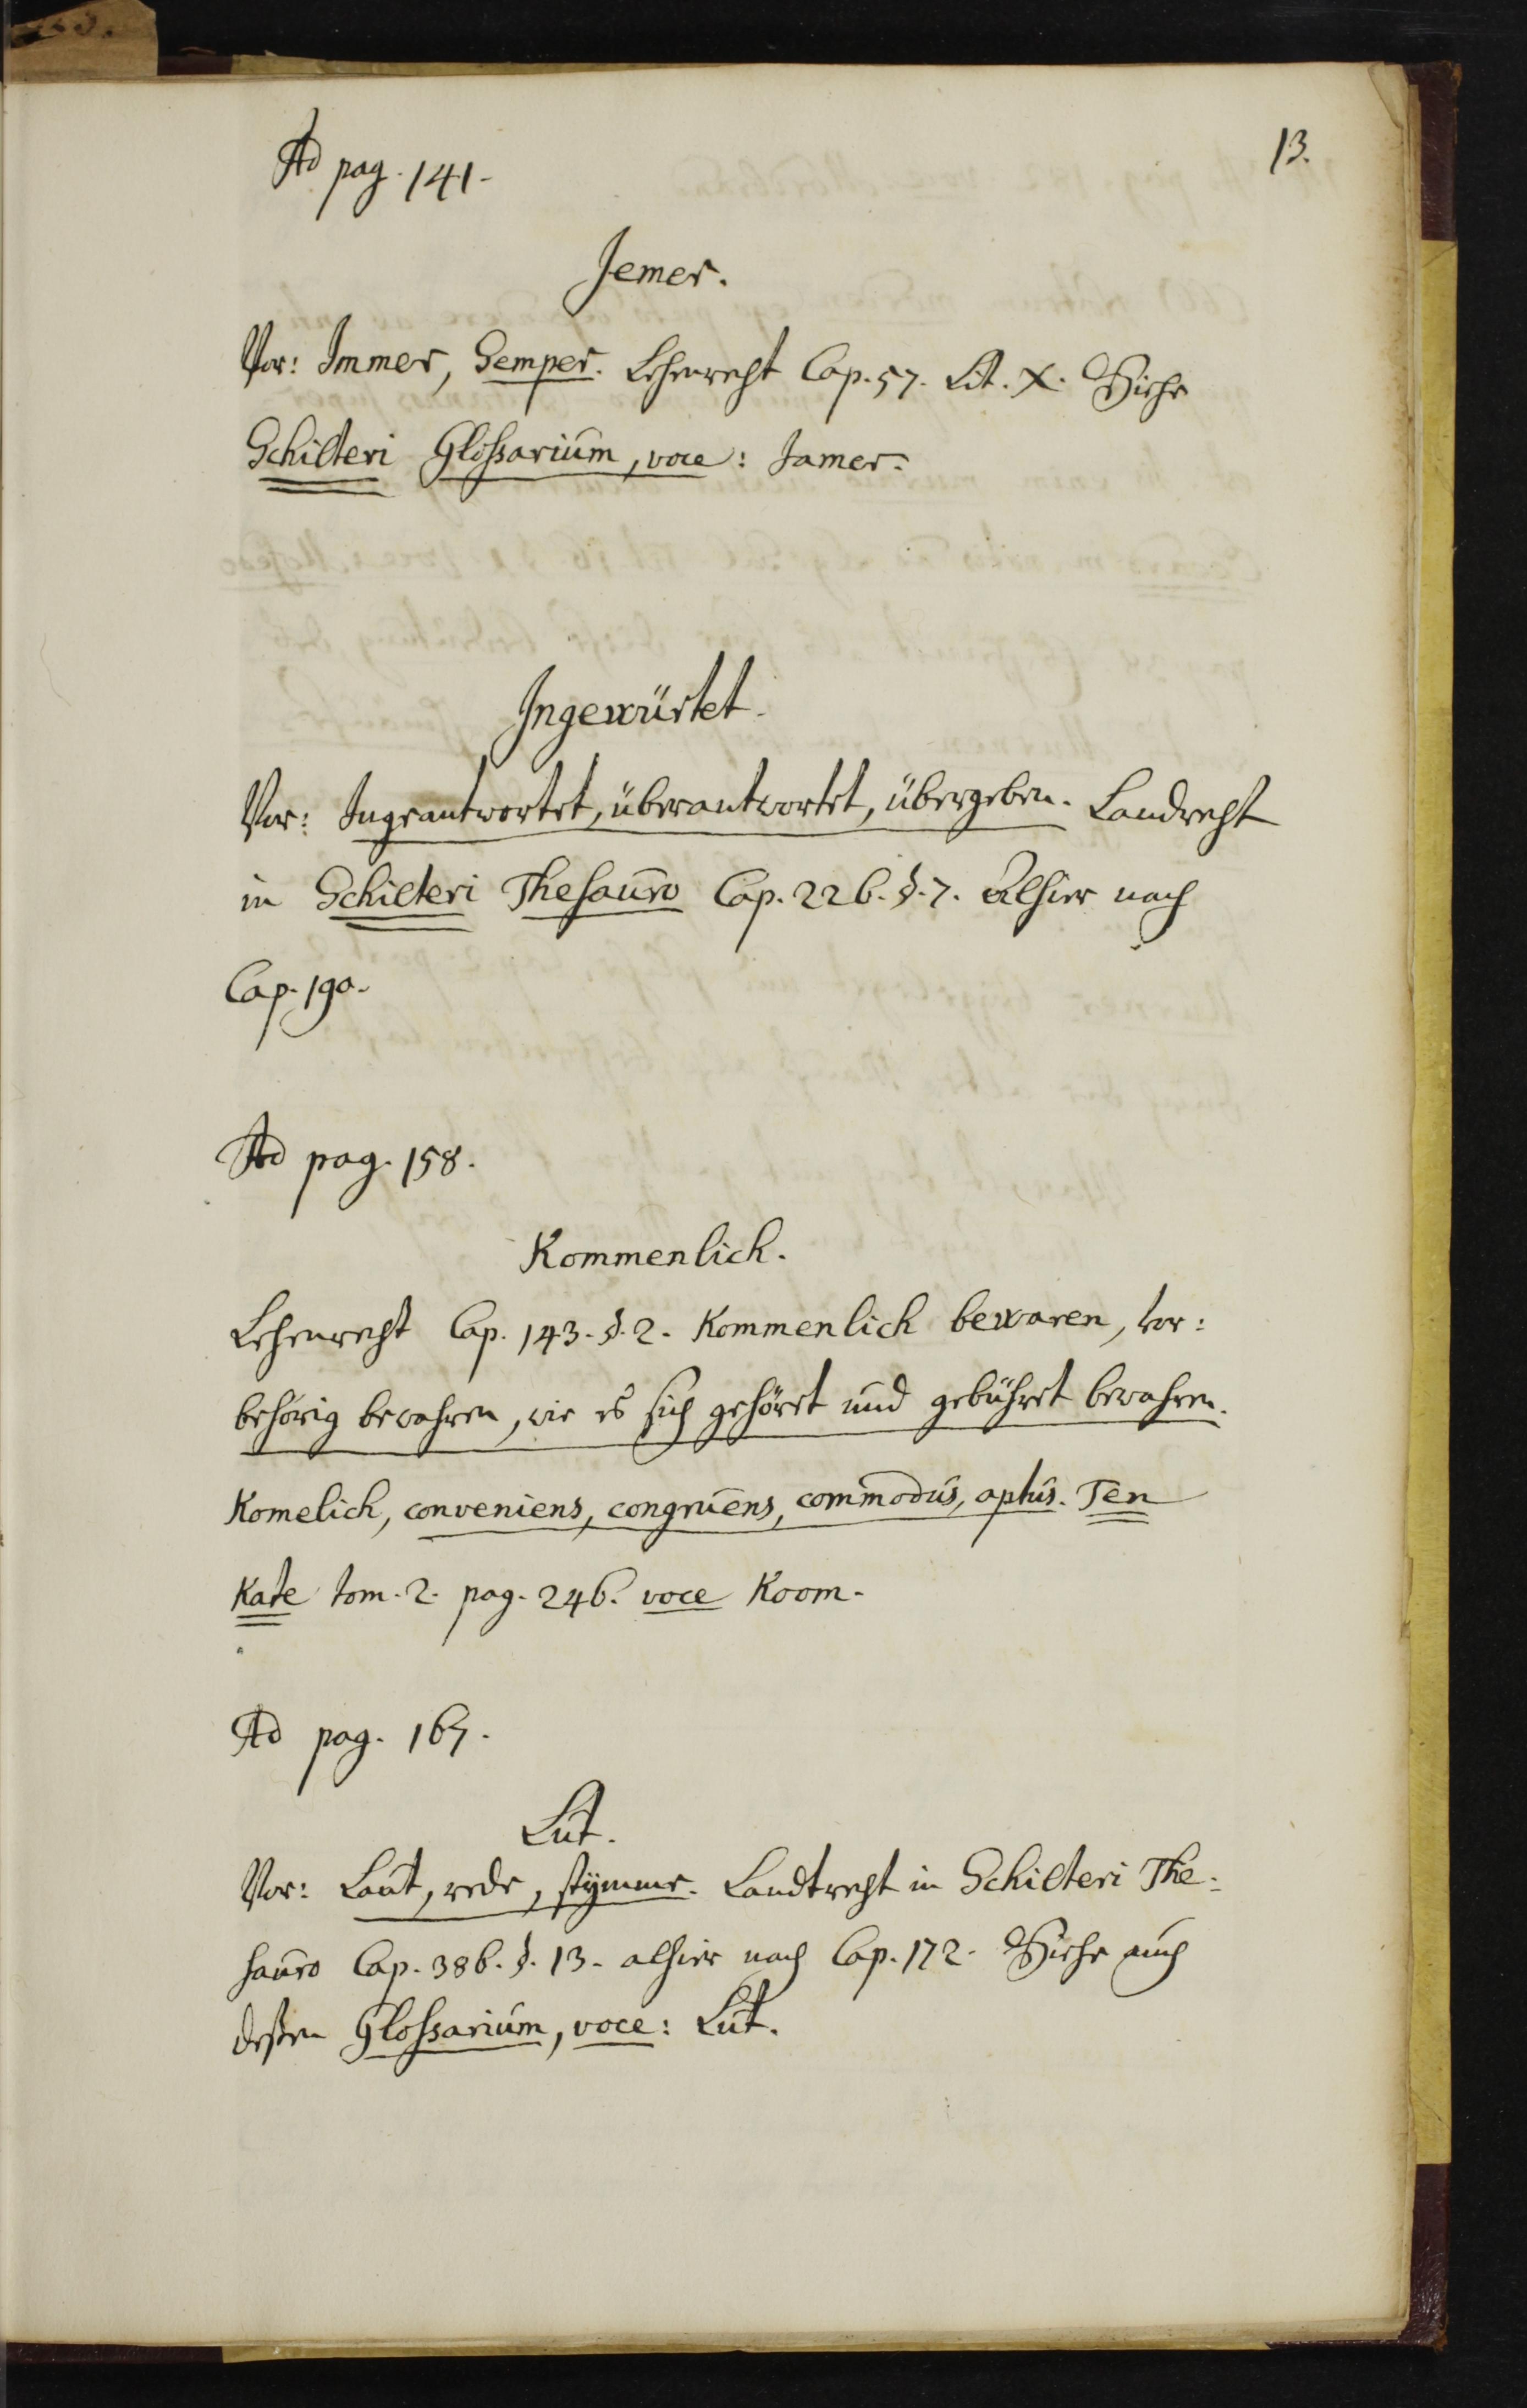 13.
Ad pag. 141.
Jemer.
Vor: Immer, Semper. Lehenrecht Cap. 57. Lit. X. Siehe
Schilteri Gloßarium, voce: Jamer.
Ingewürtet.
Vor: Ingeantwortet, überantwortet, übergeben. Landrecht
in Schilteri Thesauro Cap. 226. §. 7. Alhier nach
Cap. 190.
Ad pag. 158.
Kommenlich.
Lehenrecht Cap. 143. §. 2. Kommenlich bewaren, vor:
behörig bewahren, wie es sich gehöret und gebühret bewahren.
Komelich, conveniens, congruens, commodus, aptus. Ten
Kate tom. 2. pag. 246. voce Koom.
Ad pag. 167.
Lut.
Vor: Laut, rede, stymme. Landtrecht in Schilteri The-
sauro Cap. 386. §. 13. alhier nach Cap. 172. Siehe auch
deßen Gloßarium, voce: Lut.